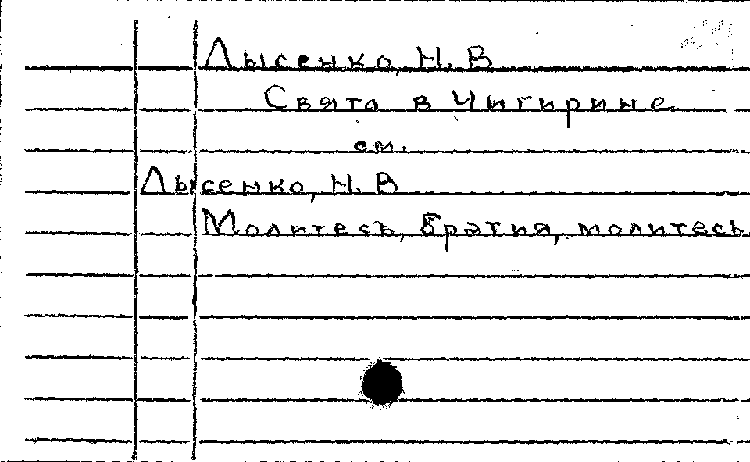 Лысенко, Н. В
Свята в Чигирине
см.
Лысенко, Н. В
Молитесь, братия, молитесь